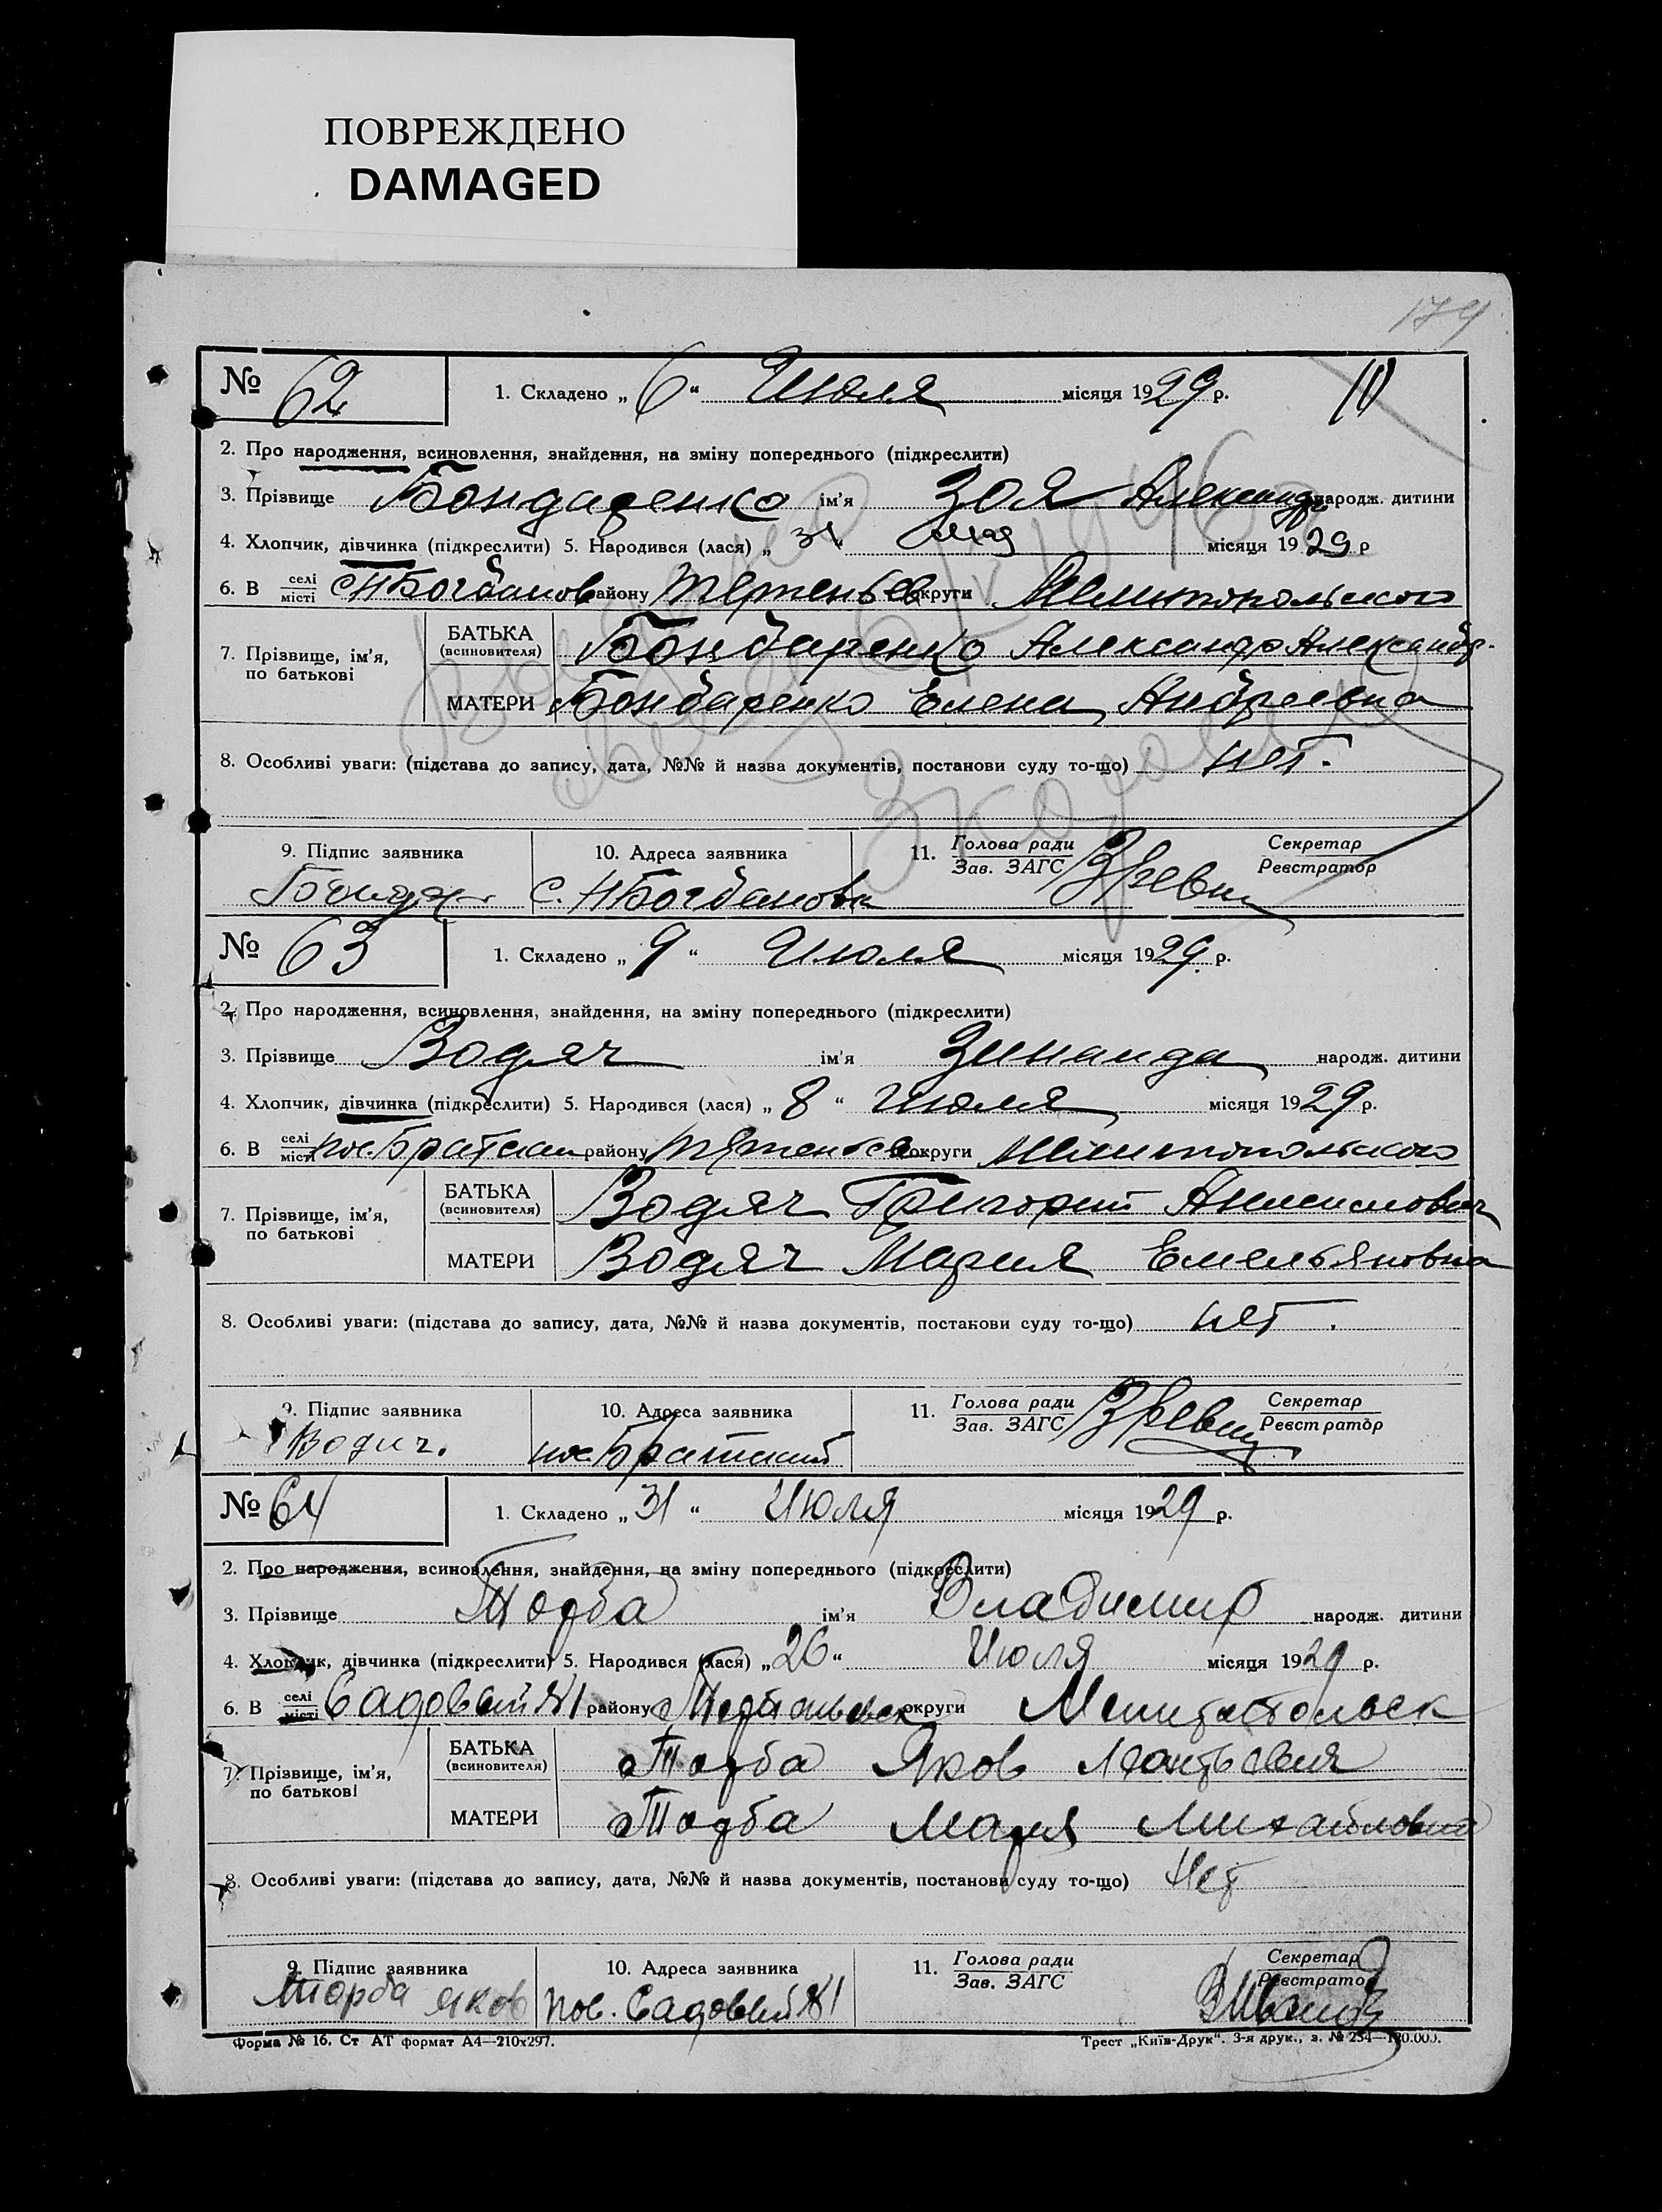 ПОВРЕЖДЕНО
DAMAGED
179
№ 62 1. Складено „ 6 “ Июля місяця 1929 р.
2. Про народження, всиновлення, знайдення, на зміну попереднього (підкреслити)
3. Прізвище Бондаренко ім'я Зоя Александр народж. дитини
4. Хлопчик, дівчинка (підкреслити) 5. Народився (лася) „ 31 “ мая місяця 1929 р
6. В селі місті с. Н Богданов району Терпеньев округи Мелитопольского
7. Прізвище, ім'я, по батькові БАТЬКА (всиновителя) Бондаренко Александр Александр.
МАТЕРИ Бондаренко Елена Андреевна
8. Особливі уваги: (підстава до запису, дата, №№ й назва документів, постанови суду то-що) нет.
9. Підпис заявника 10. Адреса заявника 11. Голова ради Зав. ЗАГС Секретар Реєстратор
с. Н Богдановка
№ 63 1. Складено „ 9 “ Июля місяця 1929 р.
2. Про народження, всиновлення, знайдення, на зміну попереднього (підкреслити)
3. Прізвище Водяч ім'я Зинаида народж. дитини
4. Хлопчик, дівчинка (підкреслити) 5. Народився (лася) „ 8 “ Июля місяця 1929 р.
6. В селі місті пос. Братский району Терпеньев округи Мелитопольского
7. Прізвище, ім'я, по батькові БАТЬКА (всиновителя) Водяч Григорий
МАТЕРИ Водяч Мария Емельяновна
8. Особливі уваги: (підстава до запису, дата, №№ й назва документів, постанови суду то-що) нет.
9. Підпис заявника 10. Адреса заявника 11. Голова ради Зав. ЗАГС Секретар Реєстратор
Водич. пос. Братский
№ 64 1. Складено „ 31 “ Июля місяця 1929 р.
2. Про народження, всиновлення, знайдення, на зміну попереднього (підкреслити)
3. Прізвище Торба ім'я Владимир народж. дитини
4. Хлопчик, дівчинка (підкреслити) 5. Народився (лася) „ 26 “ Июля місяця 1929 р.
6. В селі місті Садовый №1 району округи
7. Прізвище, ім'я, по батькові БАТЬКА (всиновителя) Торба Яков
МАТЕРИ Торба Мария Михайловна
8. Особливі уваги: (підстава до запису, дата, №№ й назва документів, постанови суду то-що) Нет
9. Підпис заявника 10. Адреса заявника 11. Голова ради Зав. ЗАГС Секретар Реєстратор
Торба Яков пос. Садовый №1
Форма № 16. Ст АТ формат А4—210х297. Трест „Київ-Друк“. 3-я друк., з. № 254—120.000.